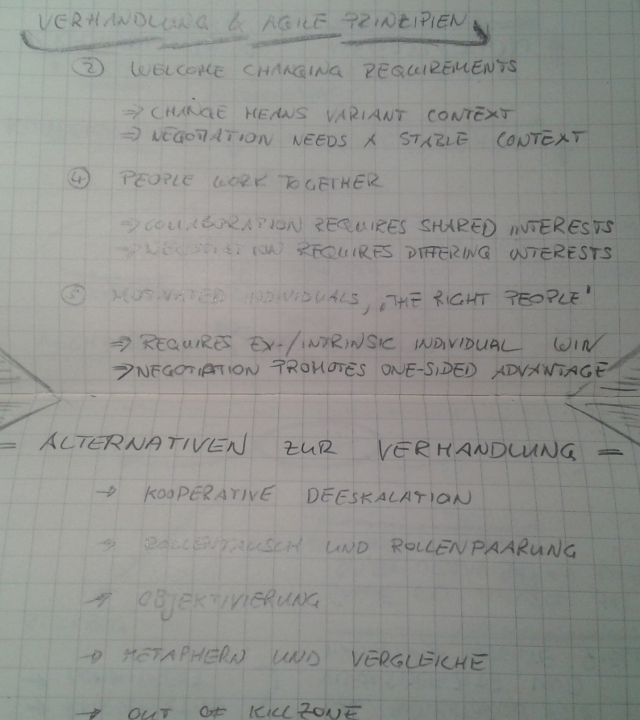 VERHANDLUNG & AGILE PRINZIPIEN
② WELCOME CHANGING REQUIREMENTS
⇒ CHANGE MEANS VARIANT CONTEXT
⇒ NEGOTIATION NEEDS A STABLE CONTEXT
④ PEOPLE WORK TOGETHER
⇒ COLLABORATION REQUIRES SHARED INTERESTS
⇒ NEGOTIATION REQUIRES DIFFERING INTERESTS
⑤ MOTIVATED INDIVIDUALS, „THE RIGHT PEOPLE'
⇒ REQUIRES EX-/INTRINSIC INDIVIDUAL WIN
⇒ NEGOTIATION PROMOTES ONE-SIDED ADVANTAGE
= ALTERNATIVEN ZUR VERHANDLUNG =
→ KOOPERATIVE DEESKALATION
→ ROLLENTAUSCH UND ROLLENPAARUNG
→ OBJEKTIVIERUNG
→ METAPHERN UND VERGLEICHE
→ OUT OF KILLZONE